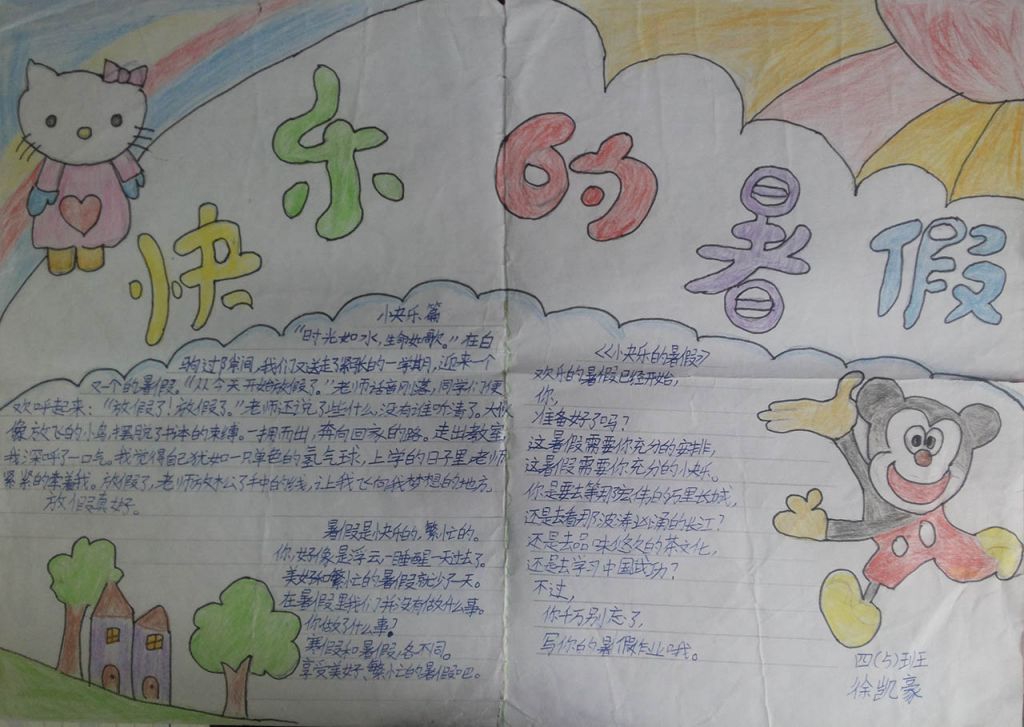 快乐的暑假
小快乐篇
“时光如水,生命如歌。”在白
驹过隙间,我们又送走了紧张的一学期,迎来一个
又一个的暑假。“从今天开始放假了。”老师话音刚落,同学们便
欢呼起来:“放假了!放假了。”老师还说了些什么,没有谁听清了。大伙
像放飞的小鸟,摆脱了书本的束缚。一拥而出,奔向回家的路。走出教室
我深呼了一口气。我觉得自己犹如一只单色的氢气球,上学的日子里,老师
紧紧的牵着我。放假了,老师放松了手中的线,让我飞向我梦想的地方
放假真好。
暑假是快乐的,繁忙的。
你,好像是浮云一睡醒一天过去了。
美好和繁忙的暑假就少了一天。
在暑假里我们并没有做什么事。
你做了什么事?
寒假和暑假,各不同。
享受美好、繁忙的暑假吧。
《小快乐的暑假》
欢乐的暑假已经开始,
你,
准备好了吗?
这暑假需要你充分的安排,
这暑假需要你充分的小快乐。
你是要去等那宏伟的万里长城,
还是去看那波涛汹涌的长江?
还是去品味悠久的茶文化,
还是去学习中国武功?
不过,
你千万别忘了,
写你的暑假作业哦。
四(5)班
徐凯豪